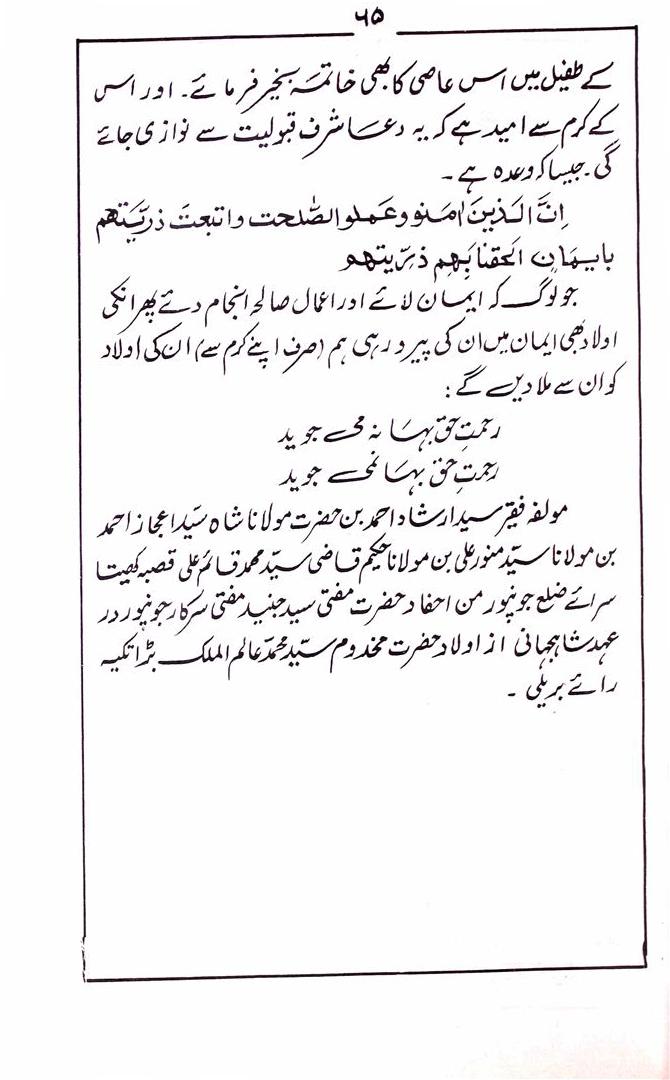 ۶۵
کے طفیل میں اس عاصی کا بھی خاتمہ بخیر فرمائے۔ اور اس
کے کرم سے امید ہے کہ یہ دعا شرف قبولیت سے نوازی جائے
گی۔ جیسا کہ وعدہ ہے۔
اِنَّ الَّذِینَ اٰمنو وعملو الصّٰلحت واتبعتَ ذریّتھم
بایمَانٍ اَلحقنا بِھِم ذرّیتھم
جو لوگ کہ ایمان لائے اور اعمال صالحہ انجام دئے پھر انکی
اولاد بھی ایمان میں ان کی پیرو رہی ہم (صرف اپنے کرم سے) ان کی اولاد
کو ان سے ملا دیں گے :
رحمتِ حق بہانہ می جوید
رحمتِ حق بہا نمی جوید
مولفہ فقیر سید ارشاد احمد بن حضرت مولانا شاہ سیّد اعجاز احمد
بن مولانا سیّد منور علی بن مولانا حکیم قاضی سیّد محمد قائم علی قصبہ کھیتا
سرائے ضلع جونپور من احفاد حضرت مفتی سید جنید مفتی سرکار جونپور در
عہد شاہجہانی از اولاد حضرت مخدوم سیّد محمّد عالم الملک بڑا تکیہ
رائے بریلی ۔